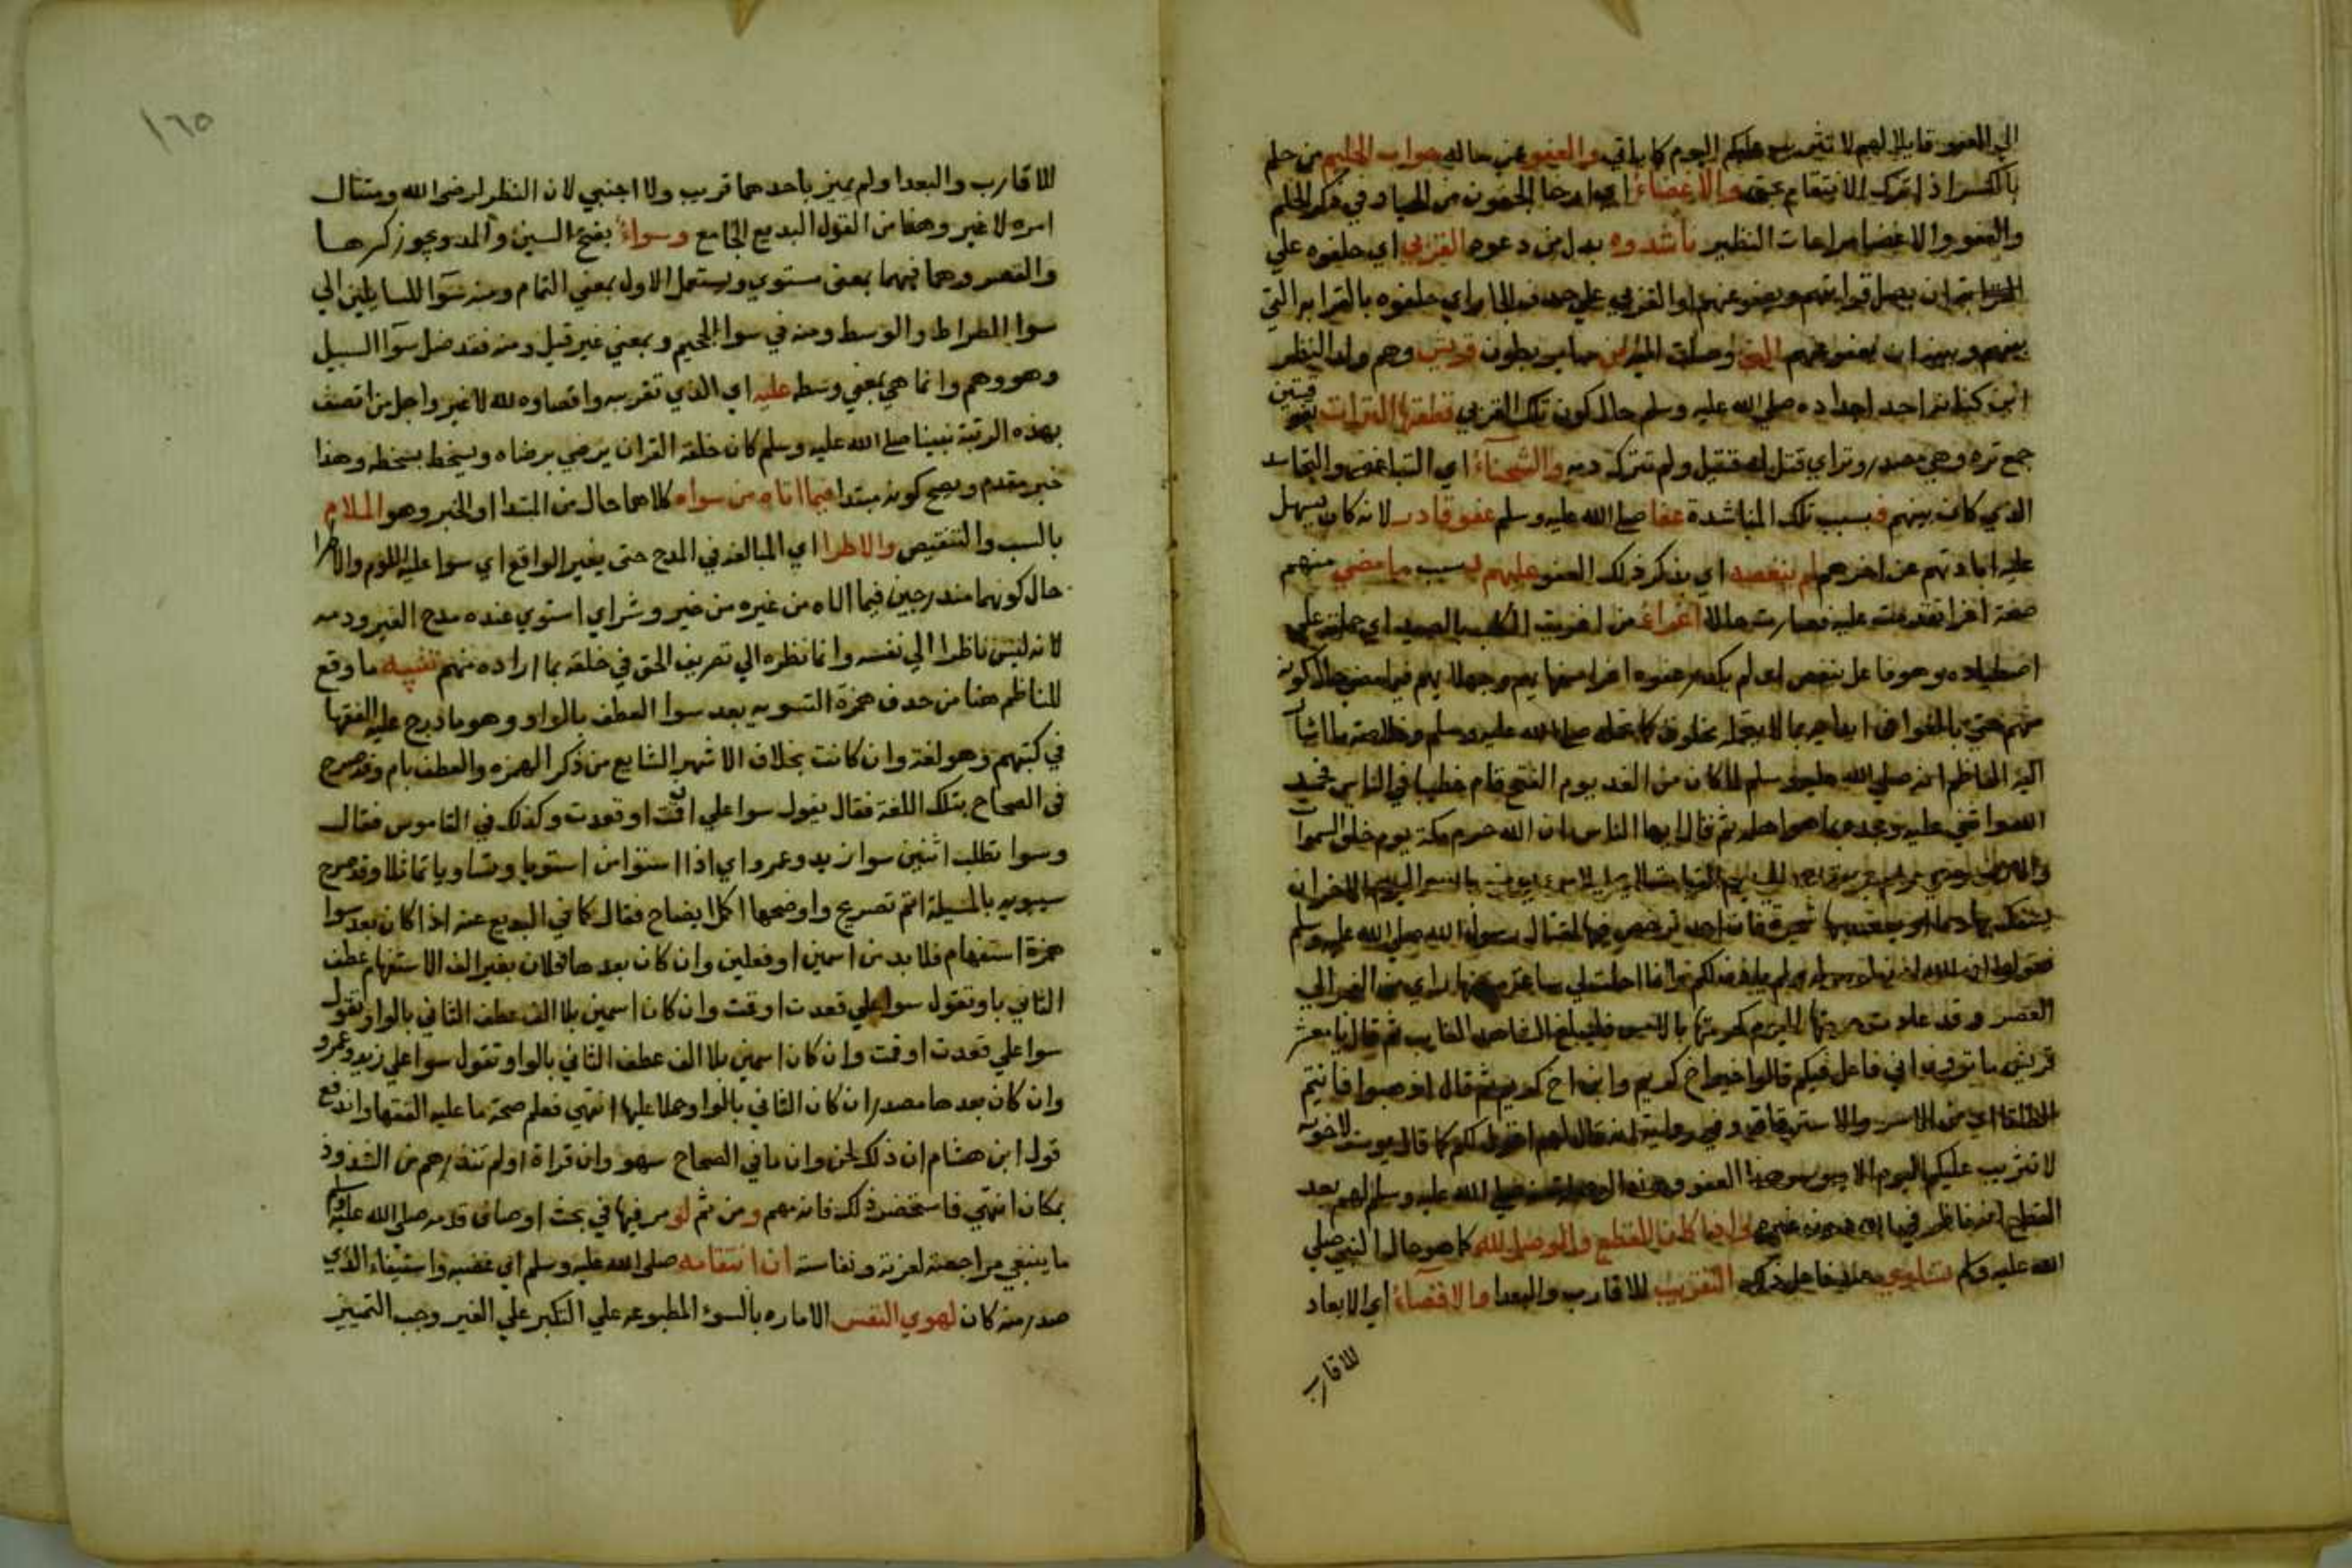 الي العفو قايلا لهم لا تثريب عليكم اليوم كما ياتي والعفو عن حاله جواب الحليم من حلم
بالكسر اذا ترك الانتقام عن والاغضاء اي ارخا الجفون من الحيا وفي ذكر الحلم
والعفو والاغضا مراعات النظير ناشدوه بدل من دعوه القربي اي حلفوه علي
ان يصل قرابتهم ويعفو عنهم او القربي علي حذف الجار اي حلفوه بالقرابه التي
بينهم وبينه ان يعفو عنهم التي وصلت اليه من ساير بطون قريش وهم ولد النظر
ابن كنانه احد اجداده صلي الله عليه وسلم حال كون تلك القربي قطعتها الترات
جمع تره وهي مصدر وتر اي قتل له قتيل ولم تترك دمه والشحناء اي التباغض والتحاسد
الذي كان بينهم فبسبب تلك المناشدة عفا صلي الله عليه وسلم عفو قادر لانه كان يسهل
عليه ابادتهم عن اخرهم لم ينغصه اي يكدر ذلك العفو عليهم بسبب ما مضي منهم
صفة اغرا تقدمت عليه فصارت حالا اغراء من اغريت الكلب بالصيد اي حملته علي
اصطياده وهو فاعل ينغص اي لم يكدر عفوه اغرا سفهايهم وجهلايهم فيما مضي حال كونه
منهم حتي بالغوا في ايذايه بما لا يتحمله مخلوق كما تحمله صلي الله عليه وسلم وخلاصة ما اشار
اليه الناظم انه صلي الله عليه وسلم لما كان من الغد يوم الفتح قام خطيبا في الناس فحمد
الله واثني عليه ومجده بما هو اهله ثم قال ايها الناس ان الله حرم مكة يوم خلق السموات
يسفك بها دما او يعضد بها شجرة فان احد ترخص فيها لقتال رسول الله صلي الله عليه وسلم
فقولوا ان الله اذن لرسوله ولم ياذن لكم وانما احلت لي ساعة من نهار اي من الفجر الي
العصر وقد عادت حرمتها اليوم كحرمتها بالامس فليبلغ الشاهد الغايب ثم قال يا معشر
قريش ما ترون اني فاعل فيكم قالوا خيرا اخ كريم وابن اخ كريم ثم قال اذهبوا فانتم
الطلقا اي من الاسر والاسترقاق وفي رواية انه قال لهم اقول لكم كما قال يوسف لاخوته
لا تثريب عليكم اليوم
الله عليه وسلم تساوي التقريب للاقارب والبعدا والاقصاء اي الابعاد
للاقارب
١٦٥
للاقارب والبعدا ولم يميز باحدهما قريب ولا اجنبي لان النظر لرضوا الله ومتثال
امره لا غير وهذا من القول البديع الجامع وسواء بفتح السين والمد ويجوز كسرها
والقصر وهما فيهما بمعني مستوي ويستعمل الاول بمعني التمام ومنه سوا للسايلين الي
سوا الطراط والوسط ومنه في سوا الجحيم وبمعني غير قيل ومنه فقد ضل سوا السبيل
وهو وهم وانما هي بمعني وسطه عليه اي الذي تقريبه واقصاوه لله لا غير واجل من اتصف
بهذه الرتبة نبينا صلي الله عليه وسلم كان خلقه القران يرضي برضاه ويسخط بسخطه وهذا
خبر مقدم ويصح كونه مبتدا فيما اتاه من سواه كلاهما حال من المبتدا او الخبر وهو الملام
بالسب والتنقيص والاطرا اي المبالغه في المدح حتي يغير الواقع اي سوا عليه اللوم والاطرا
حال كونهما مندرجين فيما اتاه من غيره من خير وشر اي استوي عنده مدح الغير وذمه
لانه ليس ناظرا الي نفسه وانما نظره الي تصريف الحق في خلقه بما اراده منهم تنبيه ما وقع
للناظم هنا من حذف همزة التسويه بعد سوا العطف بالواو وهو ما درج عليه الفقها
في كتبهم وهو لغة وان كانت بخلاف الاشهر الشايع من ذكر الهمزه والعطف بام وقد صرح
في الصحاح بتلك اللغة فقال يقول سوا علي اقمت او قعدت وكذلك في القاموس فقال
وسوا تطلب اثنين سوا زيد وعمرو اي اذا استوا من استويا وتساويا تماثلا وقد صرح
سيبويه بالمسيلة اتم تصريح واوضحها اكل ايضاح فقال كما في البديع عنه اذا كان بعد سوا
همزة استفهام فلا بد من اسمين او فعلين وان كان بعدها فعلان بغير الف الاستفهام عطف
الثاني باو تقول سوا علي قعدت او قمت وان كان اسمين بلا الف عطف الثاني بالواو تقول
سوا علي قعدت او قمت وان كان اسمين بلا الف عطف الثاني بالواو تقول سوا علي زيد وعمرو
وان كان بعدها مصدران كان الثاني بالواو حملا عليها انتهي فعلم صحة ما عليه الفقها واندفع
قول ابن هشام ان ذلك لحن وان ما في الصحاح سهو وان قراة او لم تنذرهم من الشذوذ
بمكان انتهي فاستحضر ذلك فانه مهم ومن ثم لو مر فيها في بحث اوصاف قدمه صلي الله عليه وسلم
ما ينبغي مراجعته لعزته ونفاسته ان انتقامه صلي الله عليه وسلم اي غضبه واستيفاء الذي
صدر منه كان لهوي النفس الاماره بالسوء المطبوعه علي التكبر علي الغير وجب التمييز